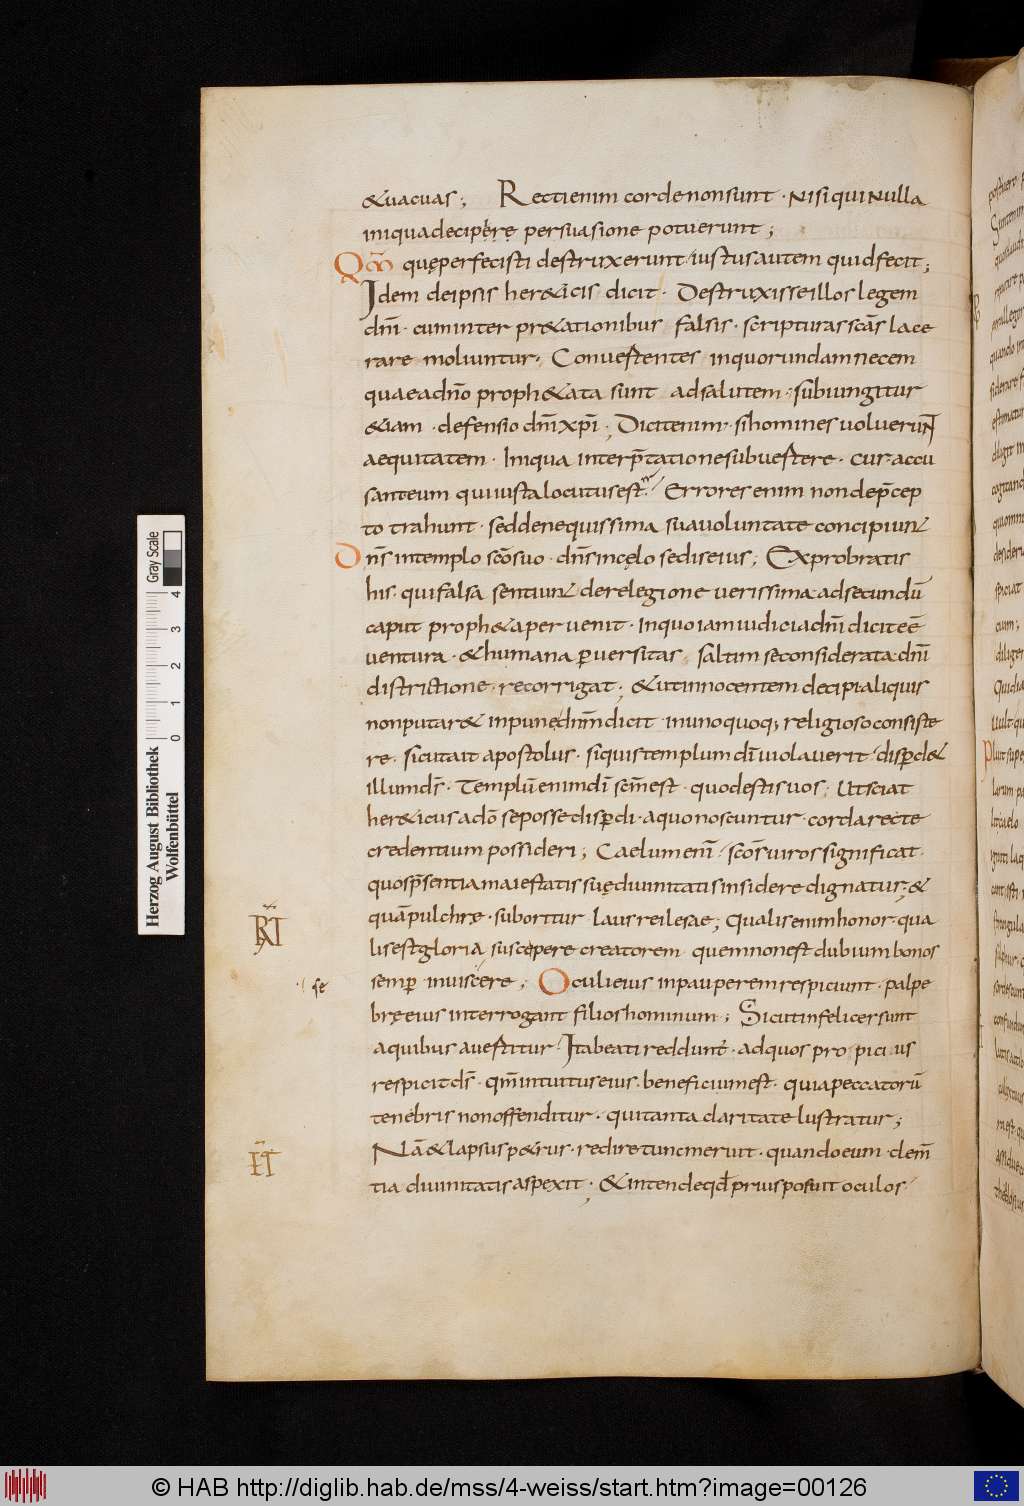 &uacuas; Rectienim corde non sunt · Nisi qui Nulla
iniqua decipere persuasione potuerunt;
Qm̄ quę perfecisti destruxerunt iustus autem quid fecit;
Idem de ipsis her&icis dicit · Destruxisse illos legem
dn̄i · cum interpr&ationibus falsis · scripturas scās lace
rare moliuntur · Convertentes in quorundam necem
quae a dn̄o proph&ata sunt ad salutem · subiungitur
&iam · defensio dn̄i xp̄i; Dicit enim · si homines uoluerunt
aequitatem · Iniqua interp̄tatione subuertere · cur accu
sant eum qui iusta locutus est Errores enim non de p̄cep
to trahunt · sed de nequissima sua uoluntate concipiunt
Dn̄s in templo scō suo · dn̄s in cęlo sedis eius; Exprobratis
his · qui falsa sentiunt de relegione uerissima · ad secundū
caput proph&a peruenit · In quo iam iudicia dn̄i dicit eē
uentura · & humana puersitas saltim se considerata dn̄i
districtione · recorrigat; & ut innocentem decipi aliquis
non putar& inpune dn̄m dicit · in unoquoq; religioso consiste
re · sicut ait apostolus · siquis templum dī uiolauerit disperd&
illum ds̄ · Templū enim dī scm̄ est · quod estis uos; Ut sciat
her&icus a dō se posse disperdi · a quo noscuntur · corda recte
credentium possideri; Caelum enī · scōs uiros significat ·
quos p̄sentia maiestatis suę diuinitatis insidere dignatus; &
quā pulchrę · suboritur laus rei lesae; Qualis enim honor · qua
lis est gloria suscepere creatorem quem non est dubium bonos
semp inuiscere; Oculi eius in pauperem respiciunt · palpe
brę eius interrogant filios hominum; Sicut infelicer sunt
a quibus auertitur · Ita beati reddunt · ad quos propicius
respicit ds̄ · qm̄ intuitus eius · beneficium est · quia peccatorū
tenebris non offenditur · qui tanta claritate lustratur;
Nā & lapsus p&rus · redire tunc meruit · quando eum clem̄
tia diuinitatis aspexit · & intende qd prius posuit oculos
se
0 1 2 3 4
Gray Scale
Herzog August Bibliothek
Wolfenbüttel
© HAB http://diglib.hab.de/mss/4-weiss/start.htm?image=00126